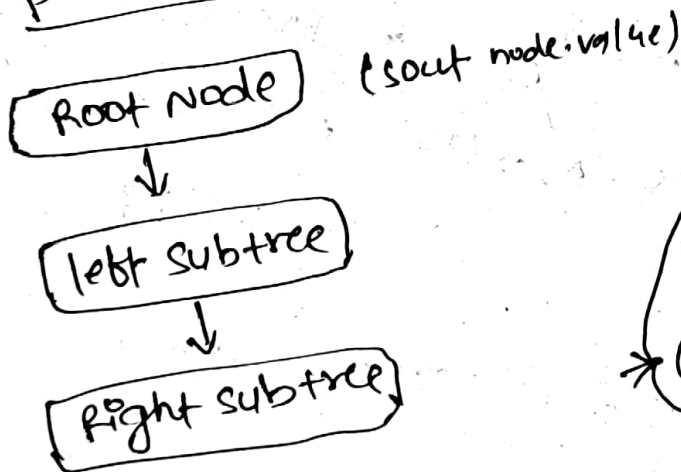 Root Node (sout node.value)
left subtree
Right subtree